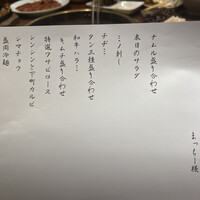 まっちー様
ナムル盛り合わせ
本日のサラダ
ミノ刺し
チヂミ
タン三種盛り合わせ
和牛ハラミ
キムチ盛り合わせ
特選ワサビロース
シンシンと下町カルビ
シマチョウ
盛岡冷麺